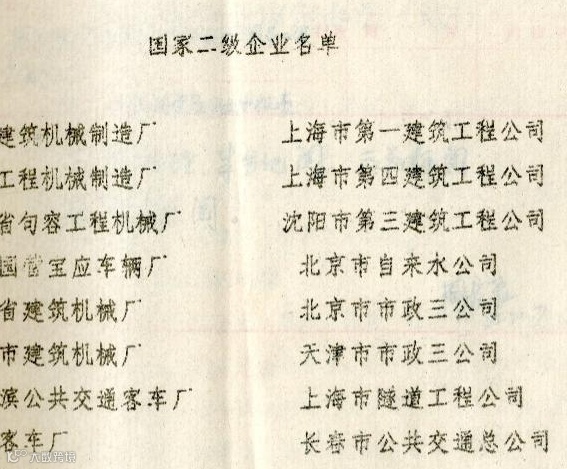 国家二级企业名单
建筑机械制造厂 上海市第一建筑工程公司
工程机械制造厂 上海市第四建筑工程公司
省句容工程机械厂 沈阳市第三建筑工程公司
国营宝应车辆厂 北京市自来水公司
省建筑机械厂 北京市市政三公司
市建筑机械厂 天津市市政三公司
滨公共交通客车厂 上海市隧道工程公司
客车厂 长春市公共交通总公司
大欧跨境